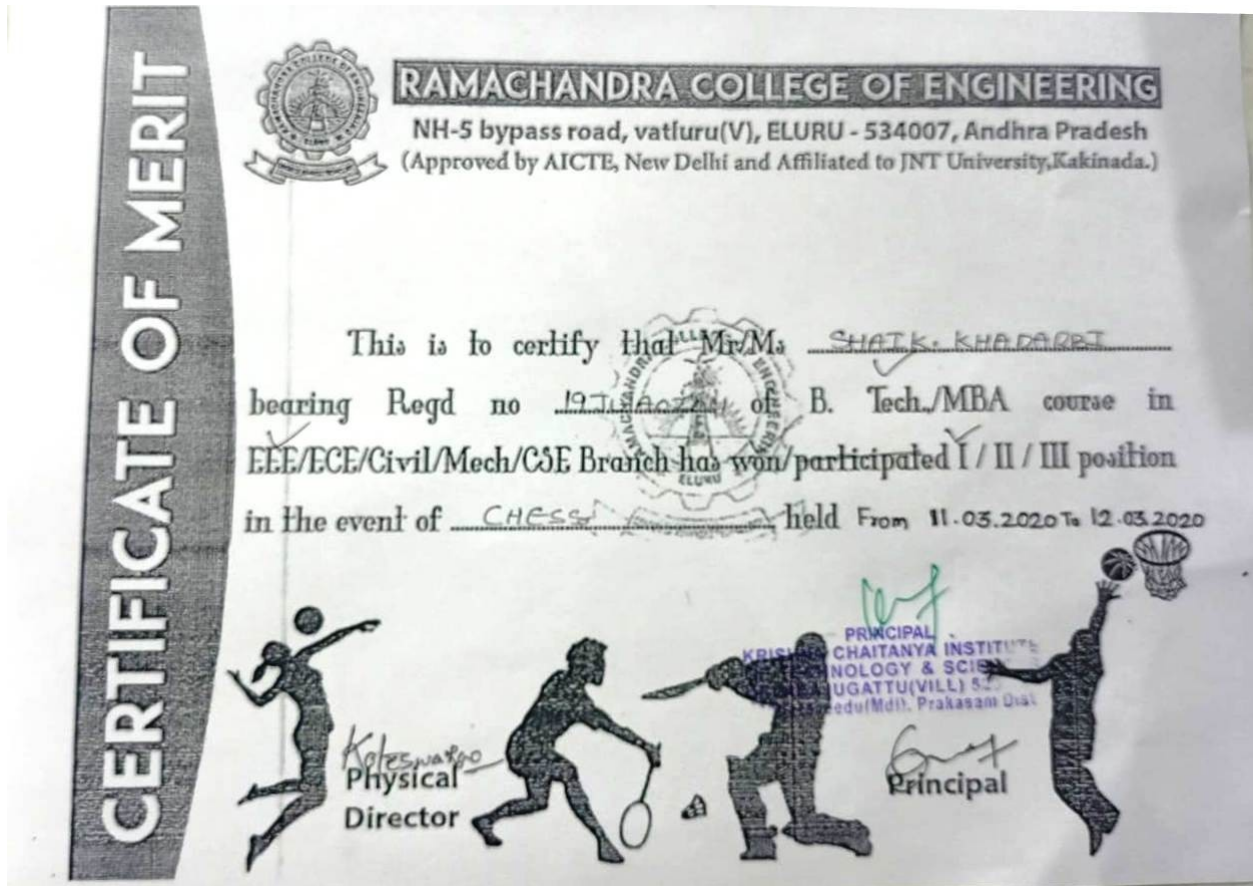 CERTIFICATE OF MERIT
RAMACHANDRA COLLEGE OF ENGINEERING
NH-5 bypass road, vatluru(V), ELURU - 534007, Andhra Pradesh
(Approved by AICTE, New Delhi and Affiliated to JNT University,Kakinada.)
This is to certify that Mr/Ms SHAIK. KHADARBI
bearing Regd no of B. Tech./MBA course in
EEE/ECE/Civil/Mech/CSE Branch has won/participated I / II / III position
in the event of CHESS held From 11.03.2020 To 12.03.2020
ELURU
PRINCIPAL
KRISHNA CHAITANYA INSTITUTE
NOLOGY & SCIE
UGATTU(VILL)
edu(Mdl), Prakasam Dist
Koteswarao
Physical
Director
Principal